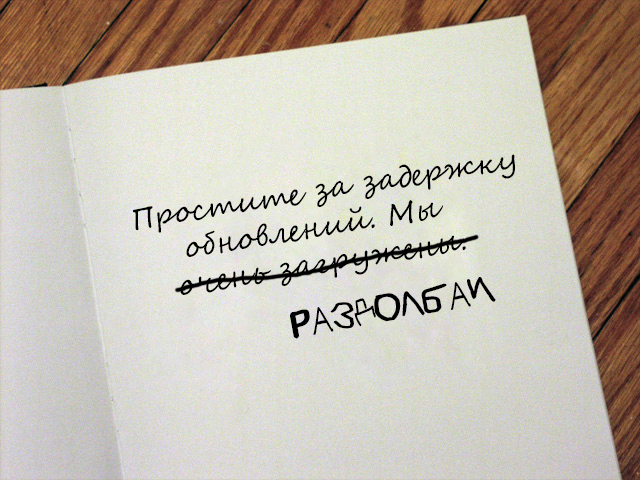 Простите за задержку
обновлений. Мы
очень загружены.
РАЗДОЛБАИ